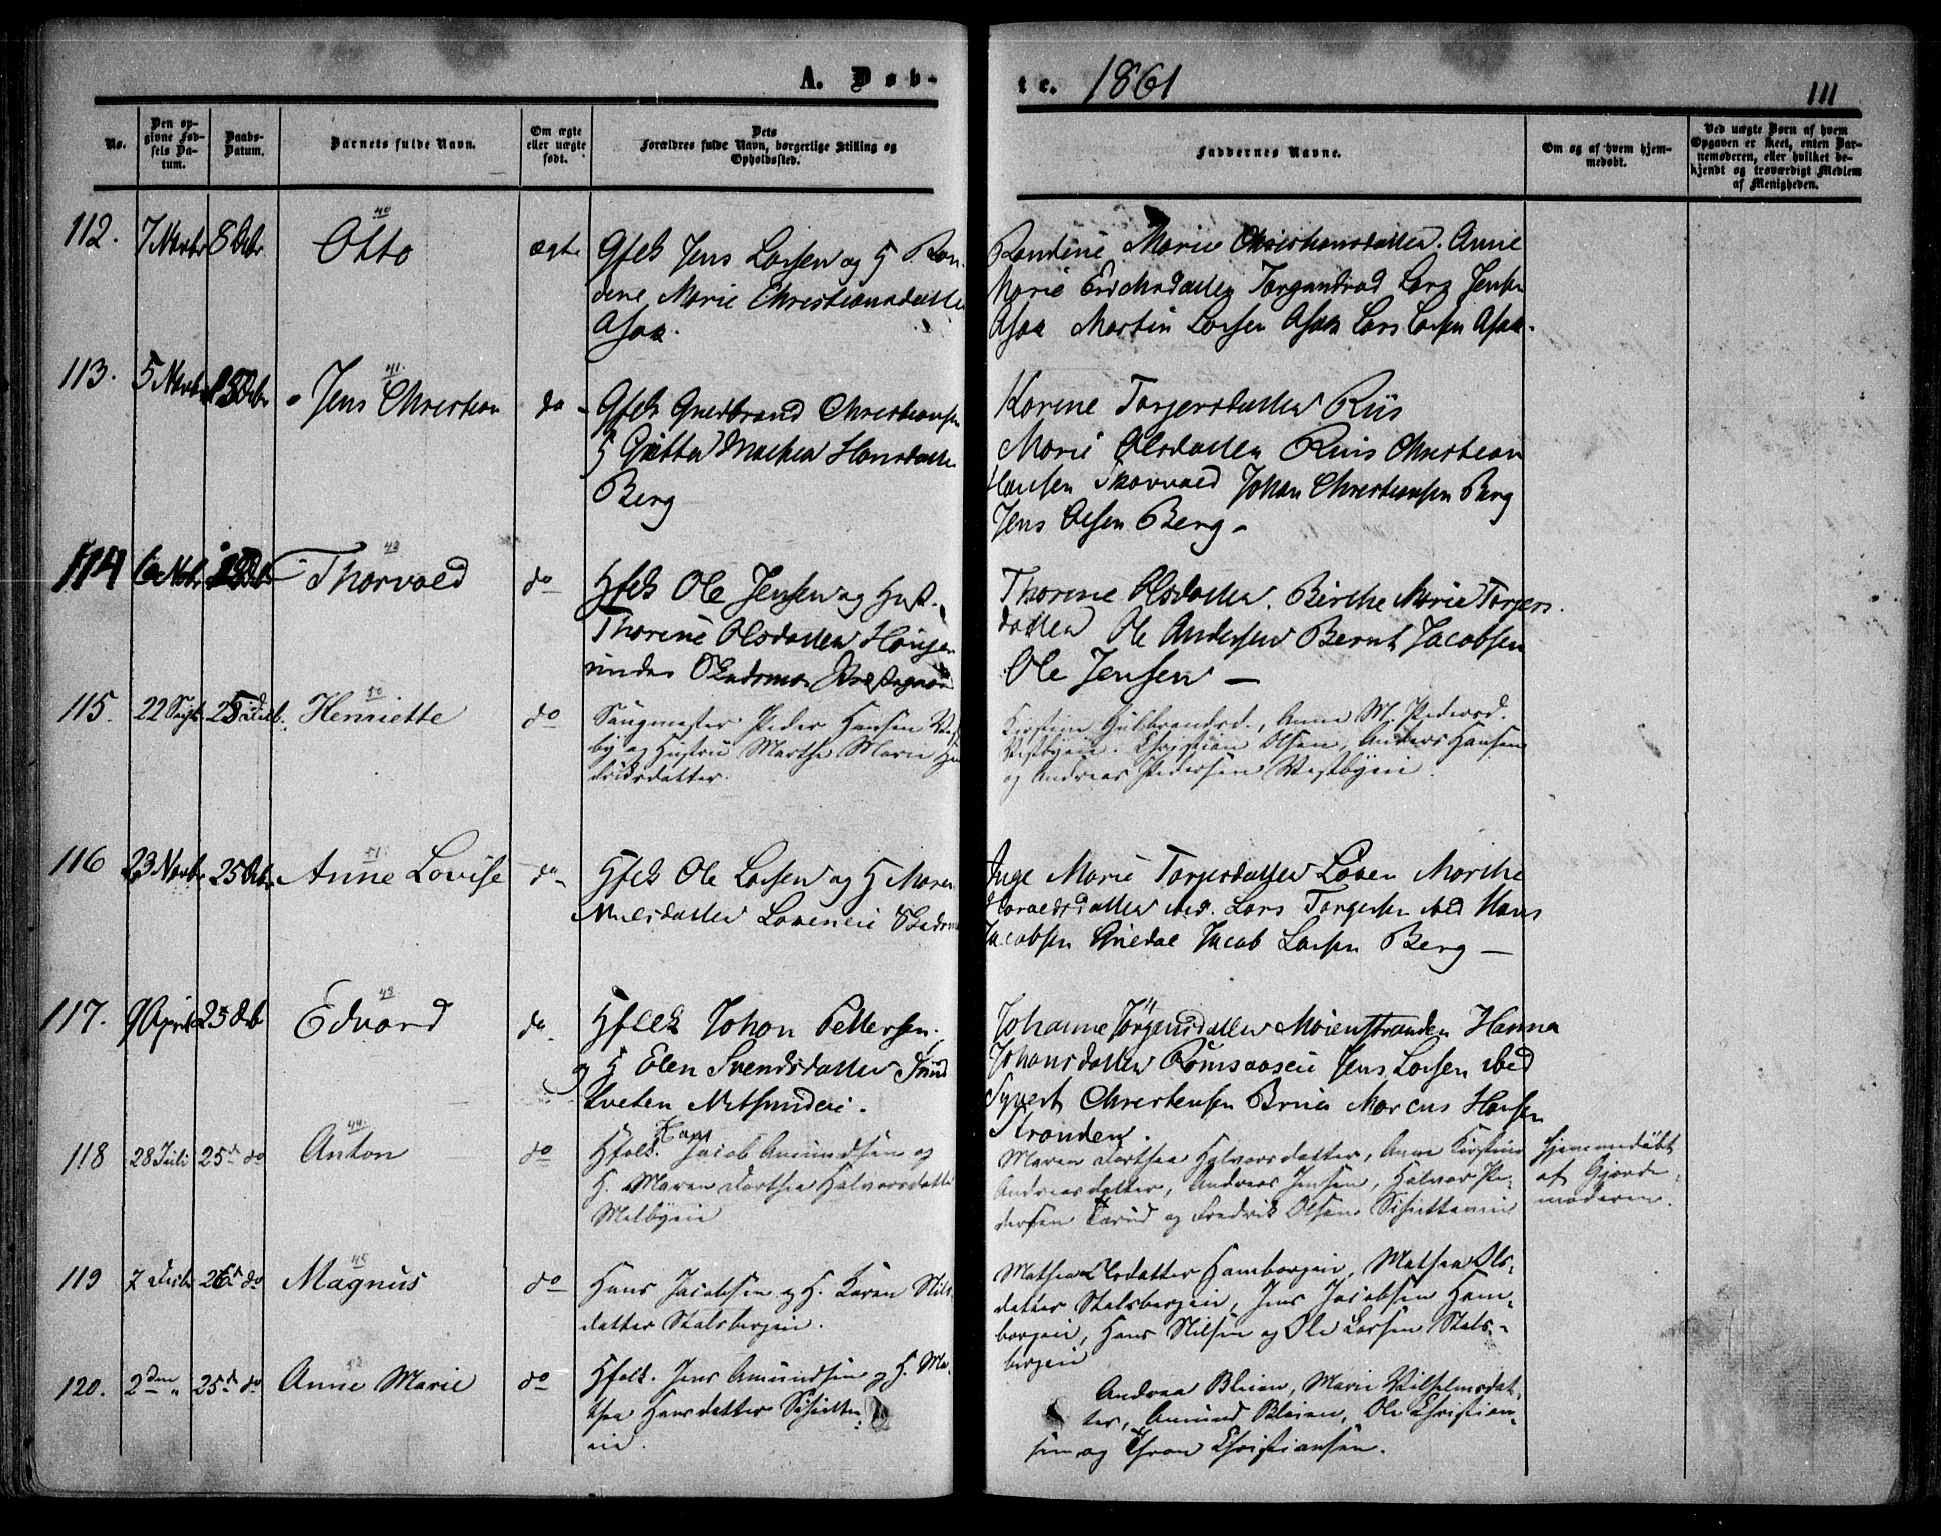 A. Døb-
te. 1861
111
No.
Den opgivne Fødsels Datum.
Daabs-Datum.
Barnets fulde Navn.
Om ægte eller uægte født.
Dets Forældres fulde Navn, borgerlige Stilling og Opholdssted.
Faddernes Navne.
Om og af hvem hjemmedøbt.
Ved uægte Børn af hvem Opgaven er skeet, enten Barnemoderen, eller hvilket bekjendt og troværdigt Medlem af Menigheden.
112. 7 Novbr 8 Debr
40
Otto
ægte
Gfolk Jens Larsen og H Ran-
dine Marie Christiansdatter
Asaa.
Randine Marie Christiansdatter. Anne
Marie Erichsdatter Lars Jensen
Asaa Martin Larsen Asaa Lars Larsen Asaa.
113. 5 Novbr
41
Jens Christian
do
Gfolk Guldbrand Christiansen
H Mathea Hansdatter
Berg
Karine Torgersdatter Riis
Marie Olsdatter Riis Christian
Hansen Thorvald Johan Christiansen Berg
Jens Olsen Berg -
114 6 Novbr
42
Thorvald
do
Hfolk Ole Jensen og Hust.
Thorine Olsdatter
under
Thorine Olsdatter. Birthe Marie Torgers
datter Ole Andersen Bernt Jacobsen
Ole Jensen -
115. 22 Sept 25 Deb.
50
Henriette
do
Saugmester Peder Hansen Vest
by og Hustru Marthe Marie Hen
driksdatter.
Kirstine Gulbrandsd., Anne M. Pedersd.
Vestbyeie. Christian Olsen, Anders Hansen
og Andreas Pedersen Vestbyeie.
116 23 Novbr 25 Debr
51
Anne Lovise
do
Hfolk Ole Larsen og H Maren
Nielsdatter Løveneie
Inge Marie Torgersdatter Løven Marthe
Haraldsdatter ibid. Lars Torgersen ibid Hans
Jacobsen Jacob Larsen Berg -
117. 9 April 25 Deb
43
Edvard
do
Hfolk Johan Pettersen
og H Elen Svendsdatter
Johanne Jörgensdatter Moienstranden Hanna
Johansdatter Romsaaseie Jens Larsen ibid
Syvert Christensen Marcus Hansen
Stranden.
118 28 Juli 25d do
44
Anton
do
Hans
Hfolk. Jacob Amundsen og
H. Maren Dorthea Halvorsdatter
Melbyeie
Maren Dorthea Halvorsdatter, Anne Kirstine
Andreasdatter, Andreas Jensen, Halvor Pe-
dersen og Fredrik Olsen
Hjemmedöbt
af Gjorde-
moderen.
119 7 26d do
45
Magnus
do
Hans Jacobsen og H. Karen Nils-
datter Stalsbergeie.
Mathea Olsdatter Hambergeie, Mathea Ols-
datter Stalsbergeie, Jens Jacobsen Ham-
bergeie, Hans Nilsen og Ole Larsen Stals-
bergeie
120. 2den " 25d do
52
Anne Marie
do
Hfolk. Jens Amundsen og H. Ma-
thea Hansdatter
eie.
Andrea Bleien, Marie Vilhelmsdat-
ter, Amund Bleien, Ole Christian-
sen og Thron Christiansen.